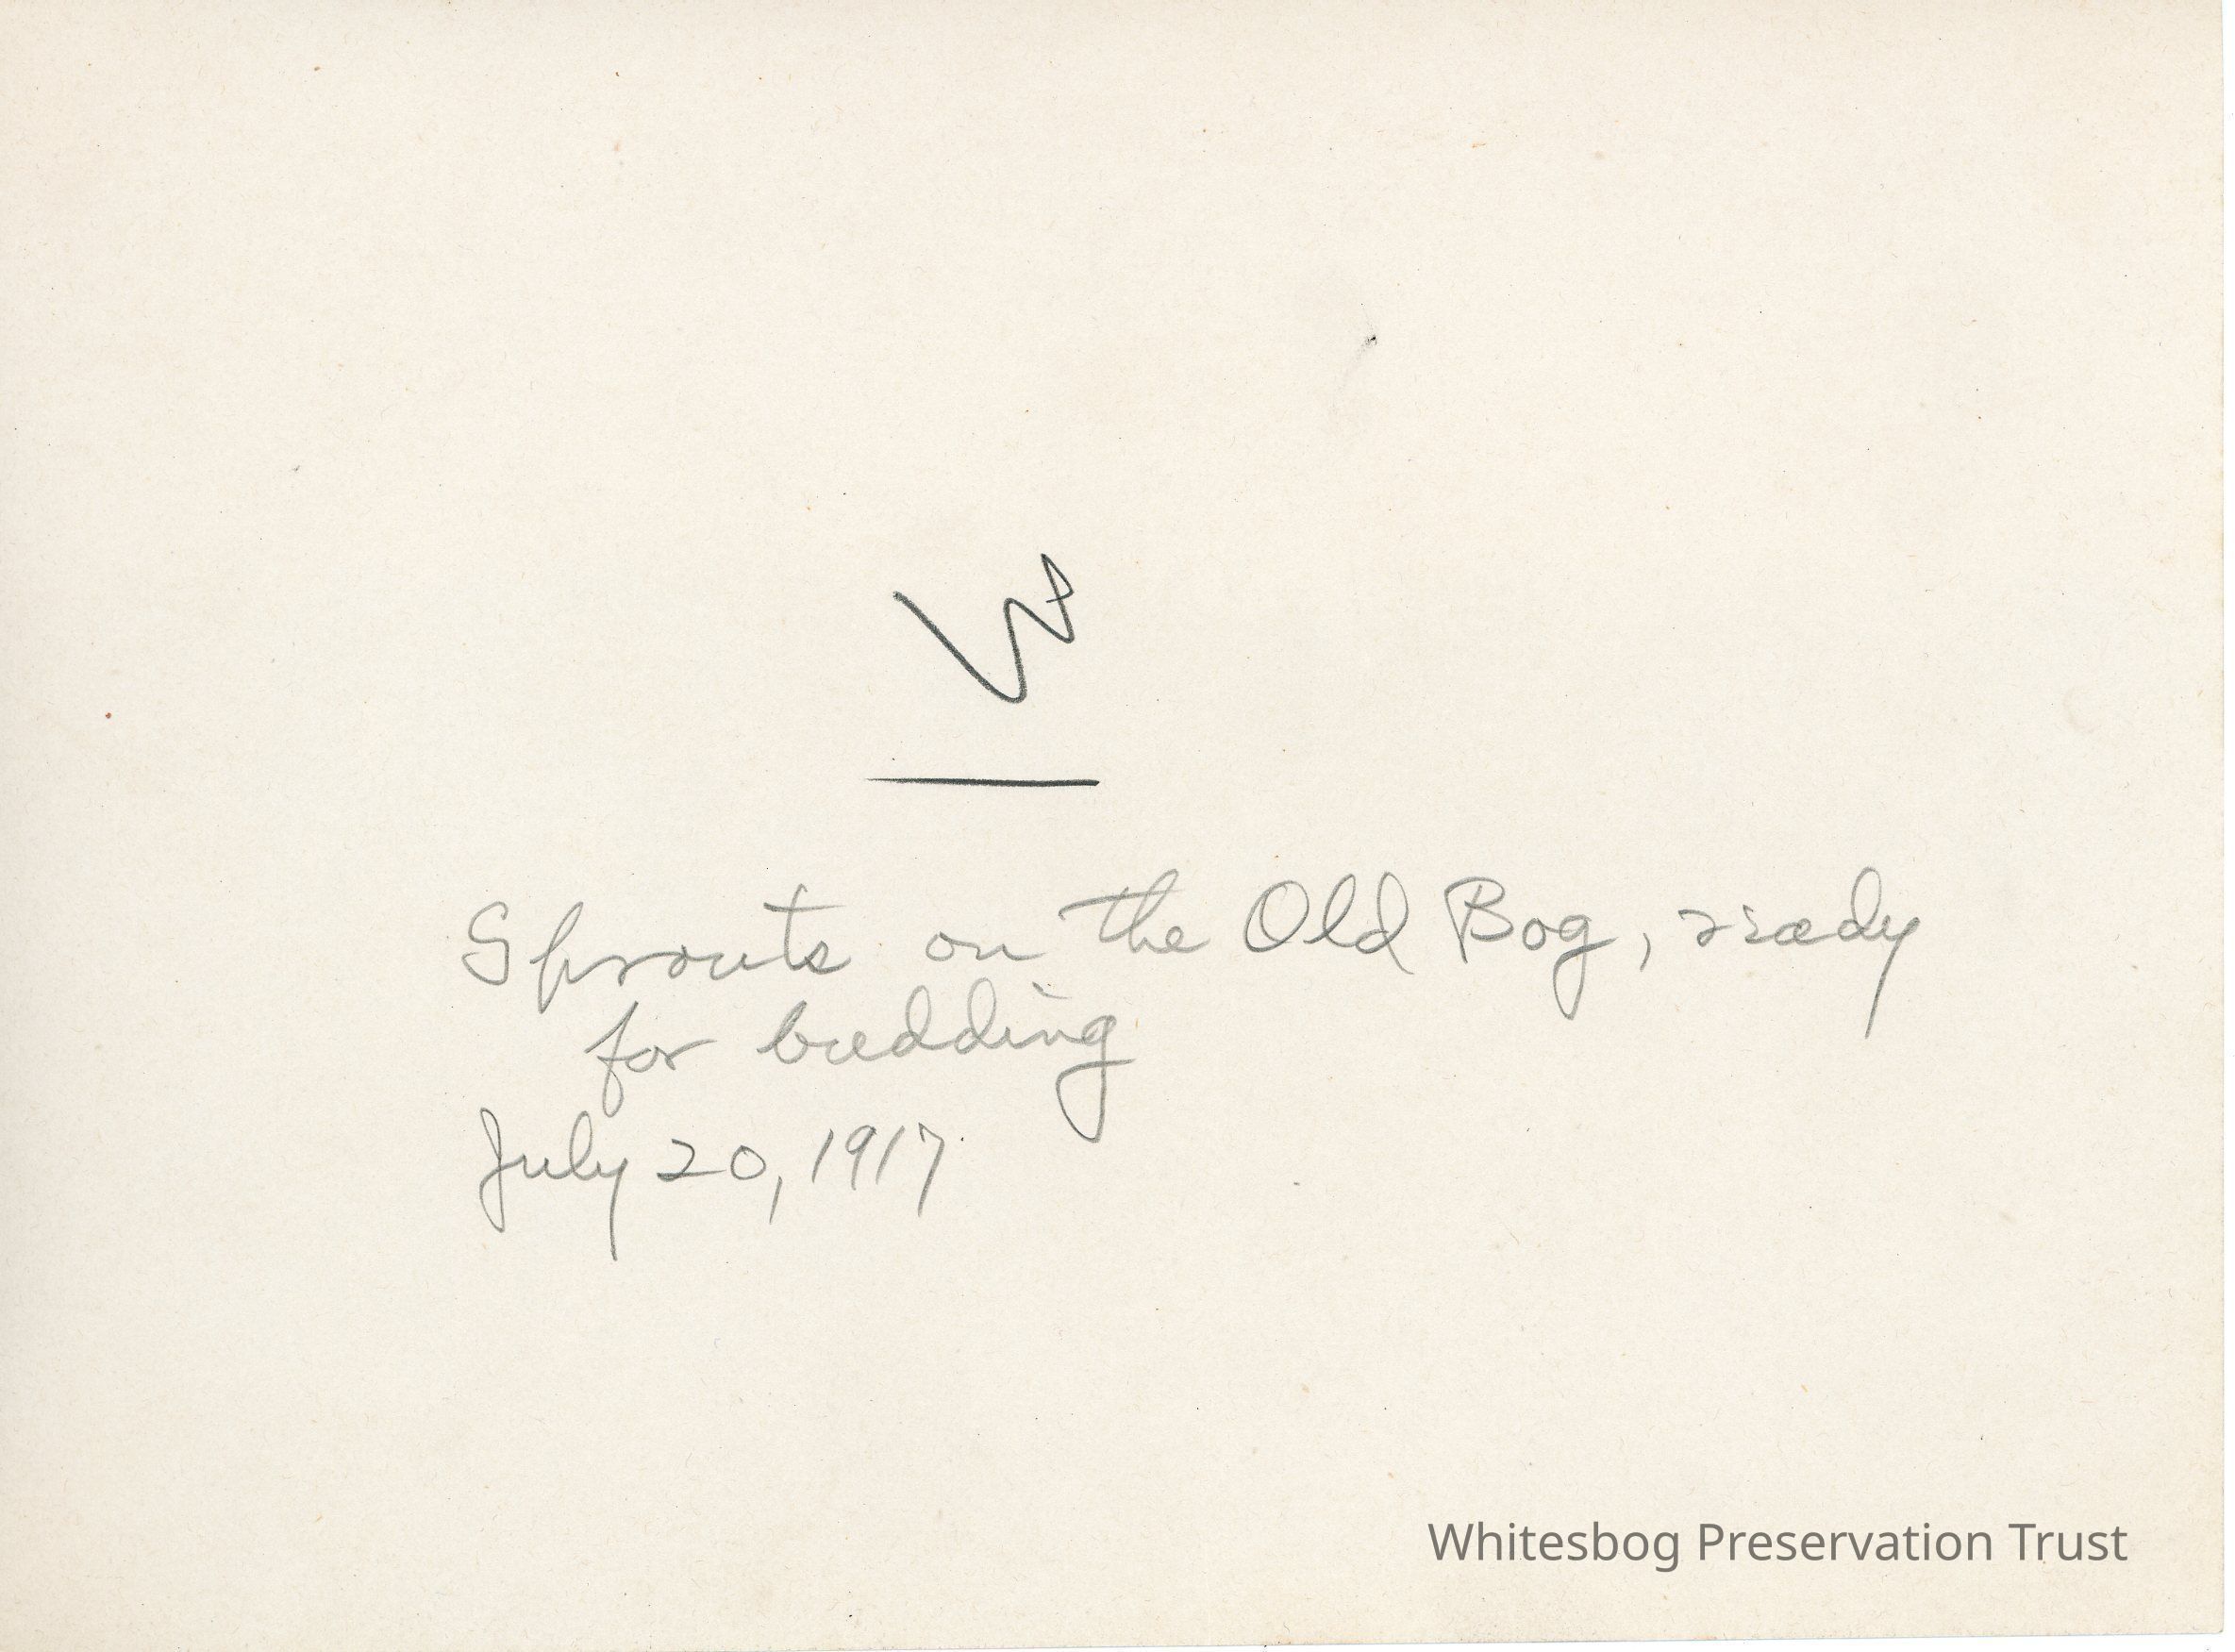 W
Sprouts on the Old Bog, ready
for budding
July 20, 1917
Whitesbog Preservation Trust